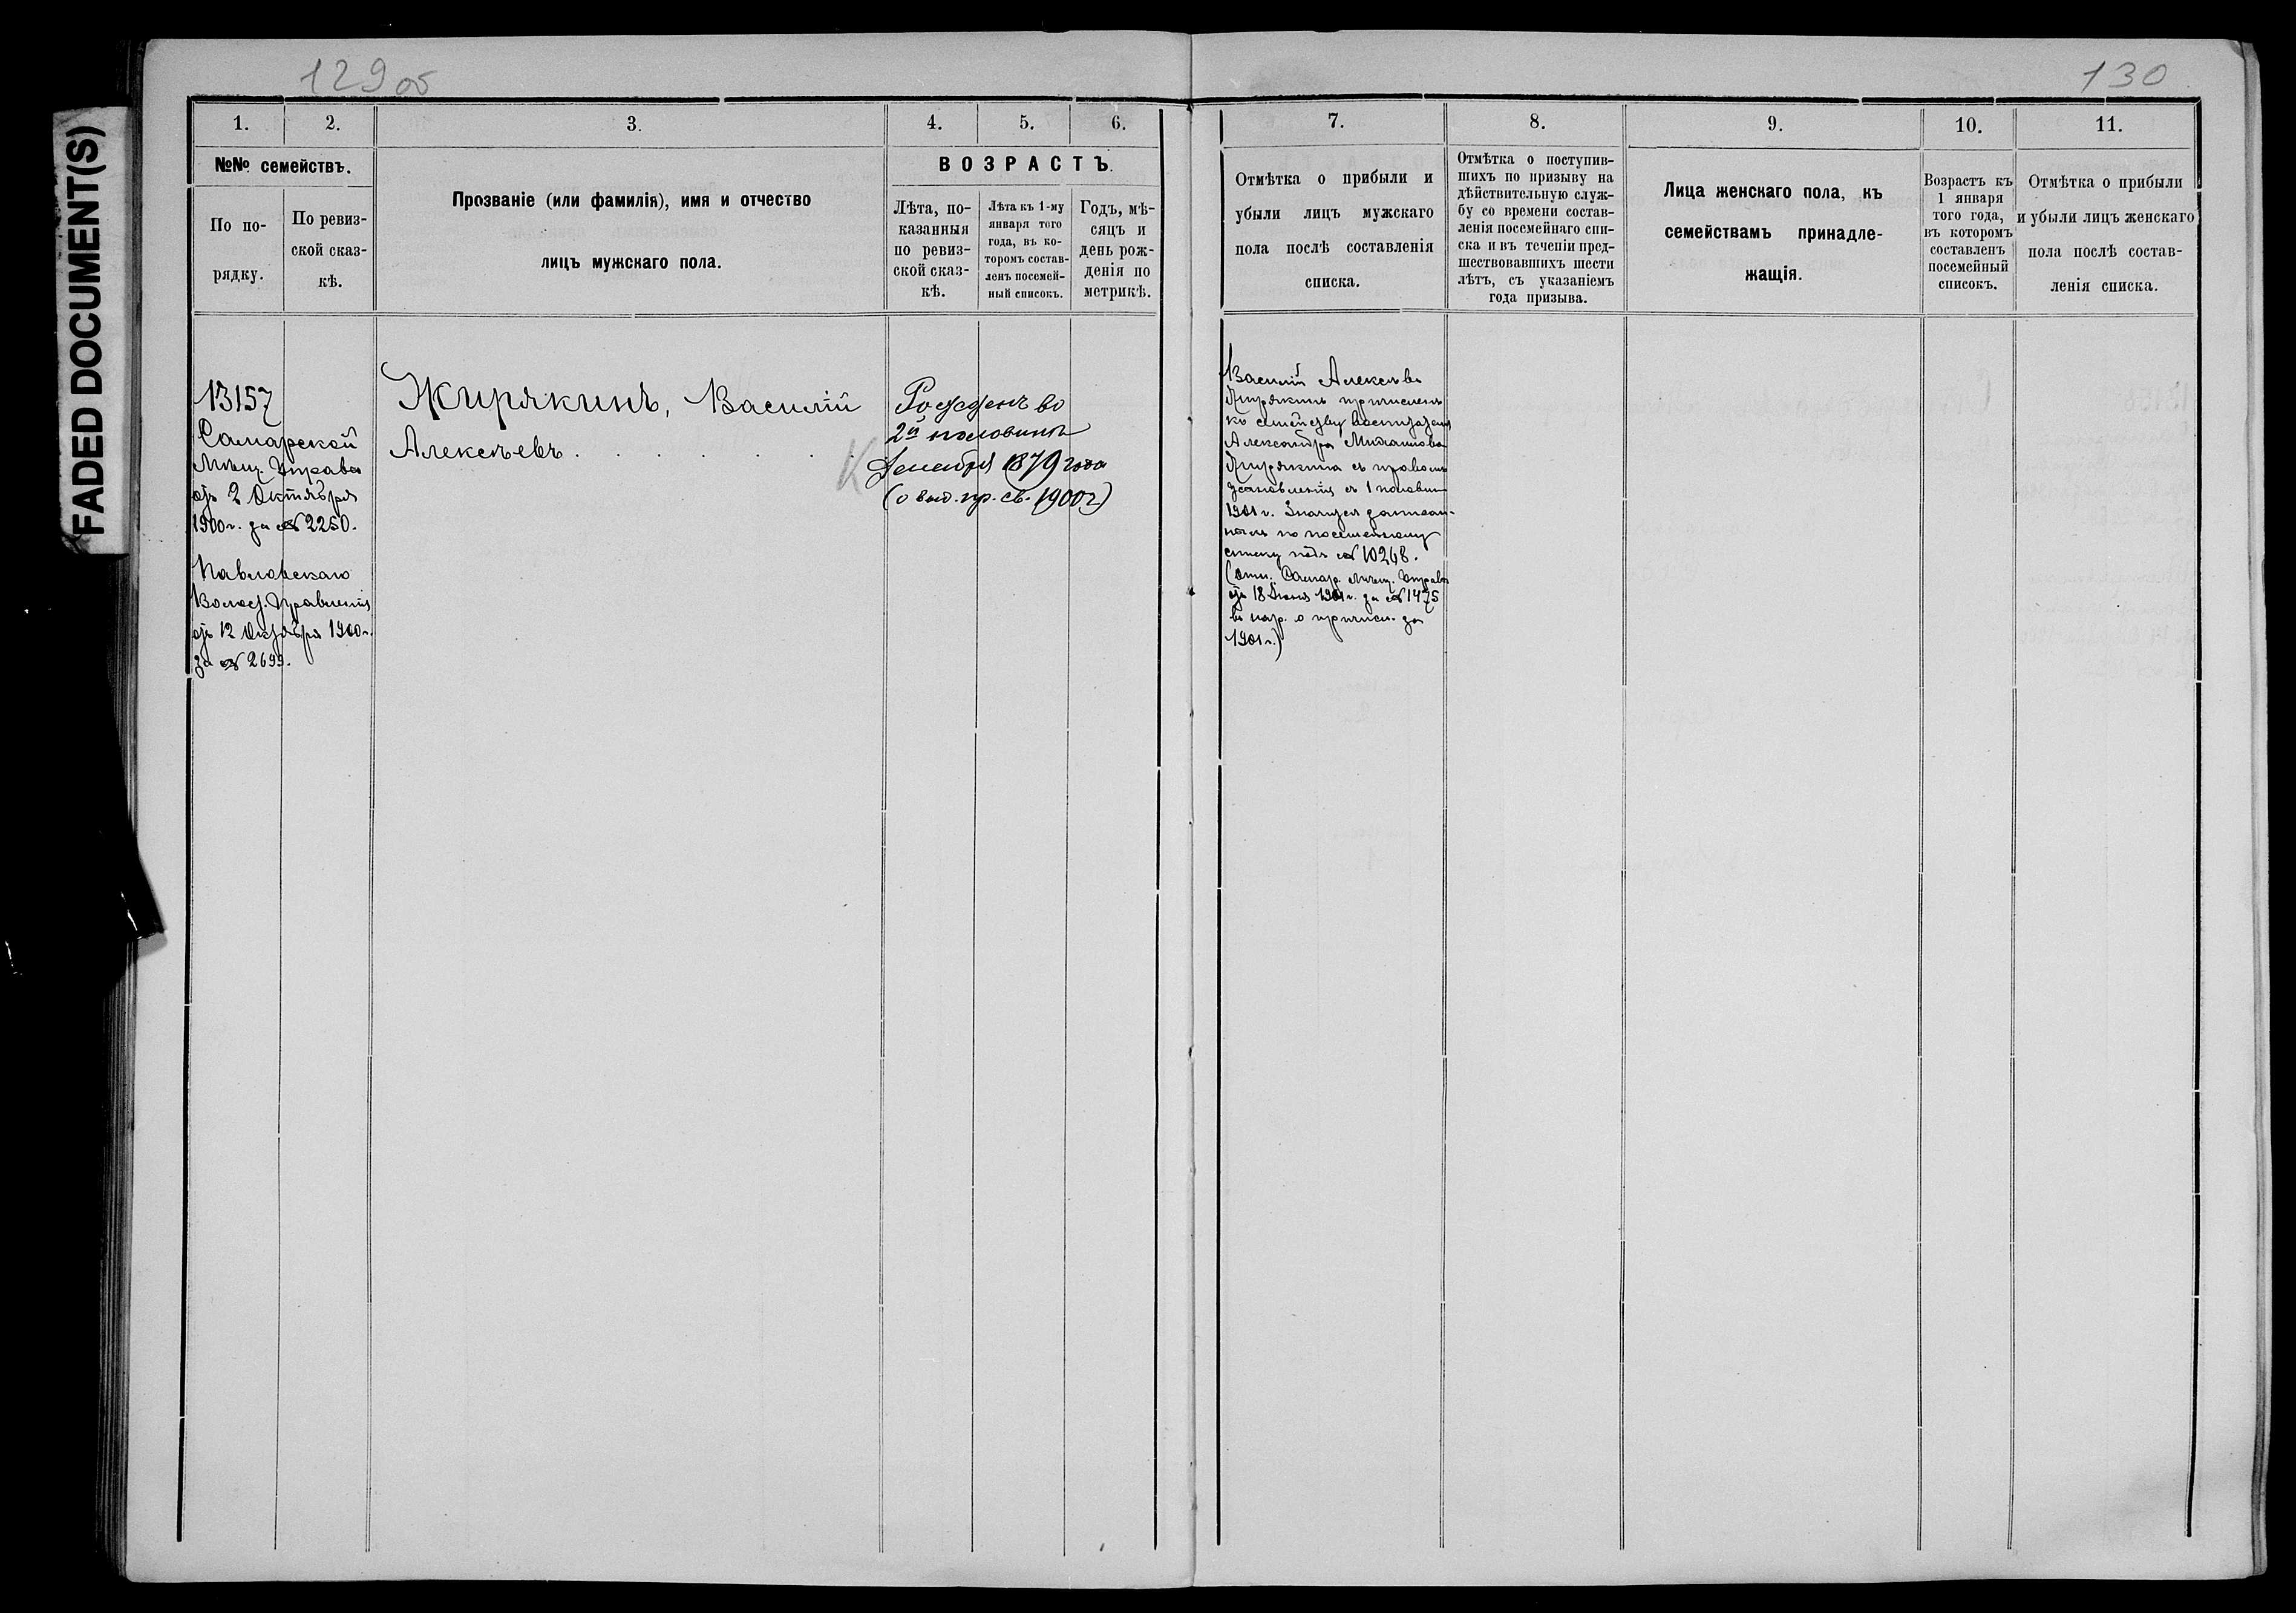 FADED DOCUMENT(S)
129 об
130
1.
2.
3.
4.
5.
6.
№№ семействъ.
По по-
рядку.
По ревиз-
ской сказ-
кѣ.
Прозваніе (или фамилія), имя и отчество
лицъ мужскаго пола.
ВОЗРАСТЪ.
Лѣта, по-
казанныя
по ревиз-
ской сказ-
кѣ.
Лѣта къ 1-му
января того
года, въ ко-
торомъ состав-
ленъ посемей-
ный списокъ.
Годъ, мѣ-
сяцъ и
день рож-
денія по
метрикѣ.
7.
8.
9.
10.
11.
Отмѣтка о прибыли и
убыли лицъ мужскаго
пола послѣ составленія
списка.
Отмѣтка о поступив-
шихъ по призыву на
дѣйствительную служ-
бу со времени состав-
ленія посемейнаго спи-
ска и въ теченіи пред-
шествовавшихъ шести
лѣтъ, съ указаніемъ
года призыва.
Лица женскаго пола, къ
семействамъ принадле-
жащія.
Возрастъ къ
1 января
того года,
въ которомъ
составленъ
посемейный
списокъ.
Отмѣтка о прибыли
и убыли лицъ женскаго
пола послѣ состав-
ленія списка.
13157
Самарской
Мѣщ. Управы
отъ 2 Октября
1900 г. за № 2250.
Павловскаго
Волост. Правленія
отъ 12 Октября 1900 г.
за № 2699.
Жирякинъ, Василій
Алексѣевъ . . . . . . .
К
Рожденъ во
2й половинѣ
Декабря 1879 года
(о вып. пр. св. 1900 г)
Василій Алексѣевъ
Жирякинъ причисленъ
къ семейству воспитателя
Александра Михайлова
Жирякина съ правомъ
с 1 половины
1901 г. Значится записан-
нымъ по посемейному
списку подъ № 10248.
(Отн. Самар. Мѣщ. Управы
отъ 18 Іюня 1901 г. за № 1475
въ нар. о причисл. за
1901 г.)